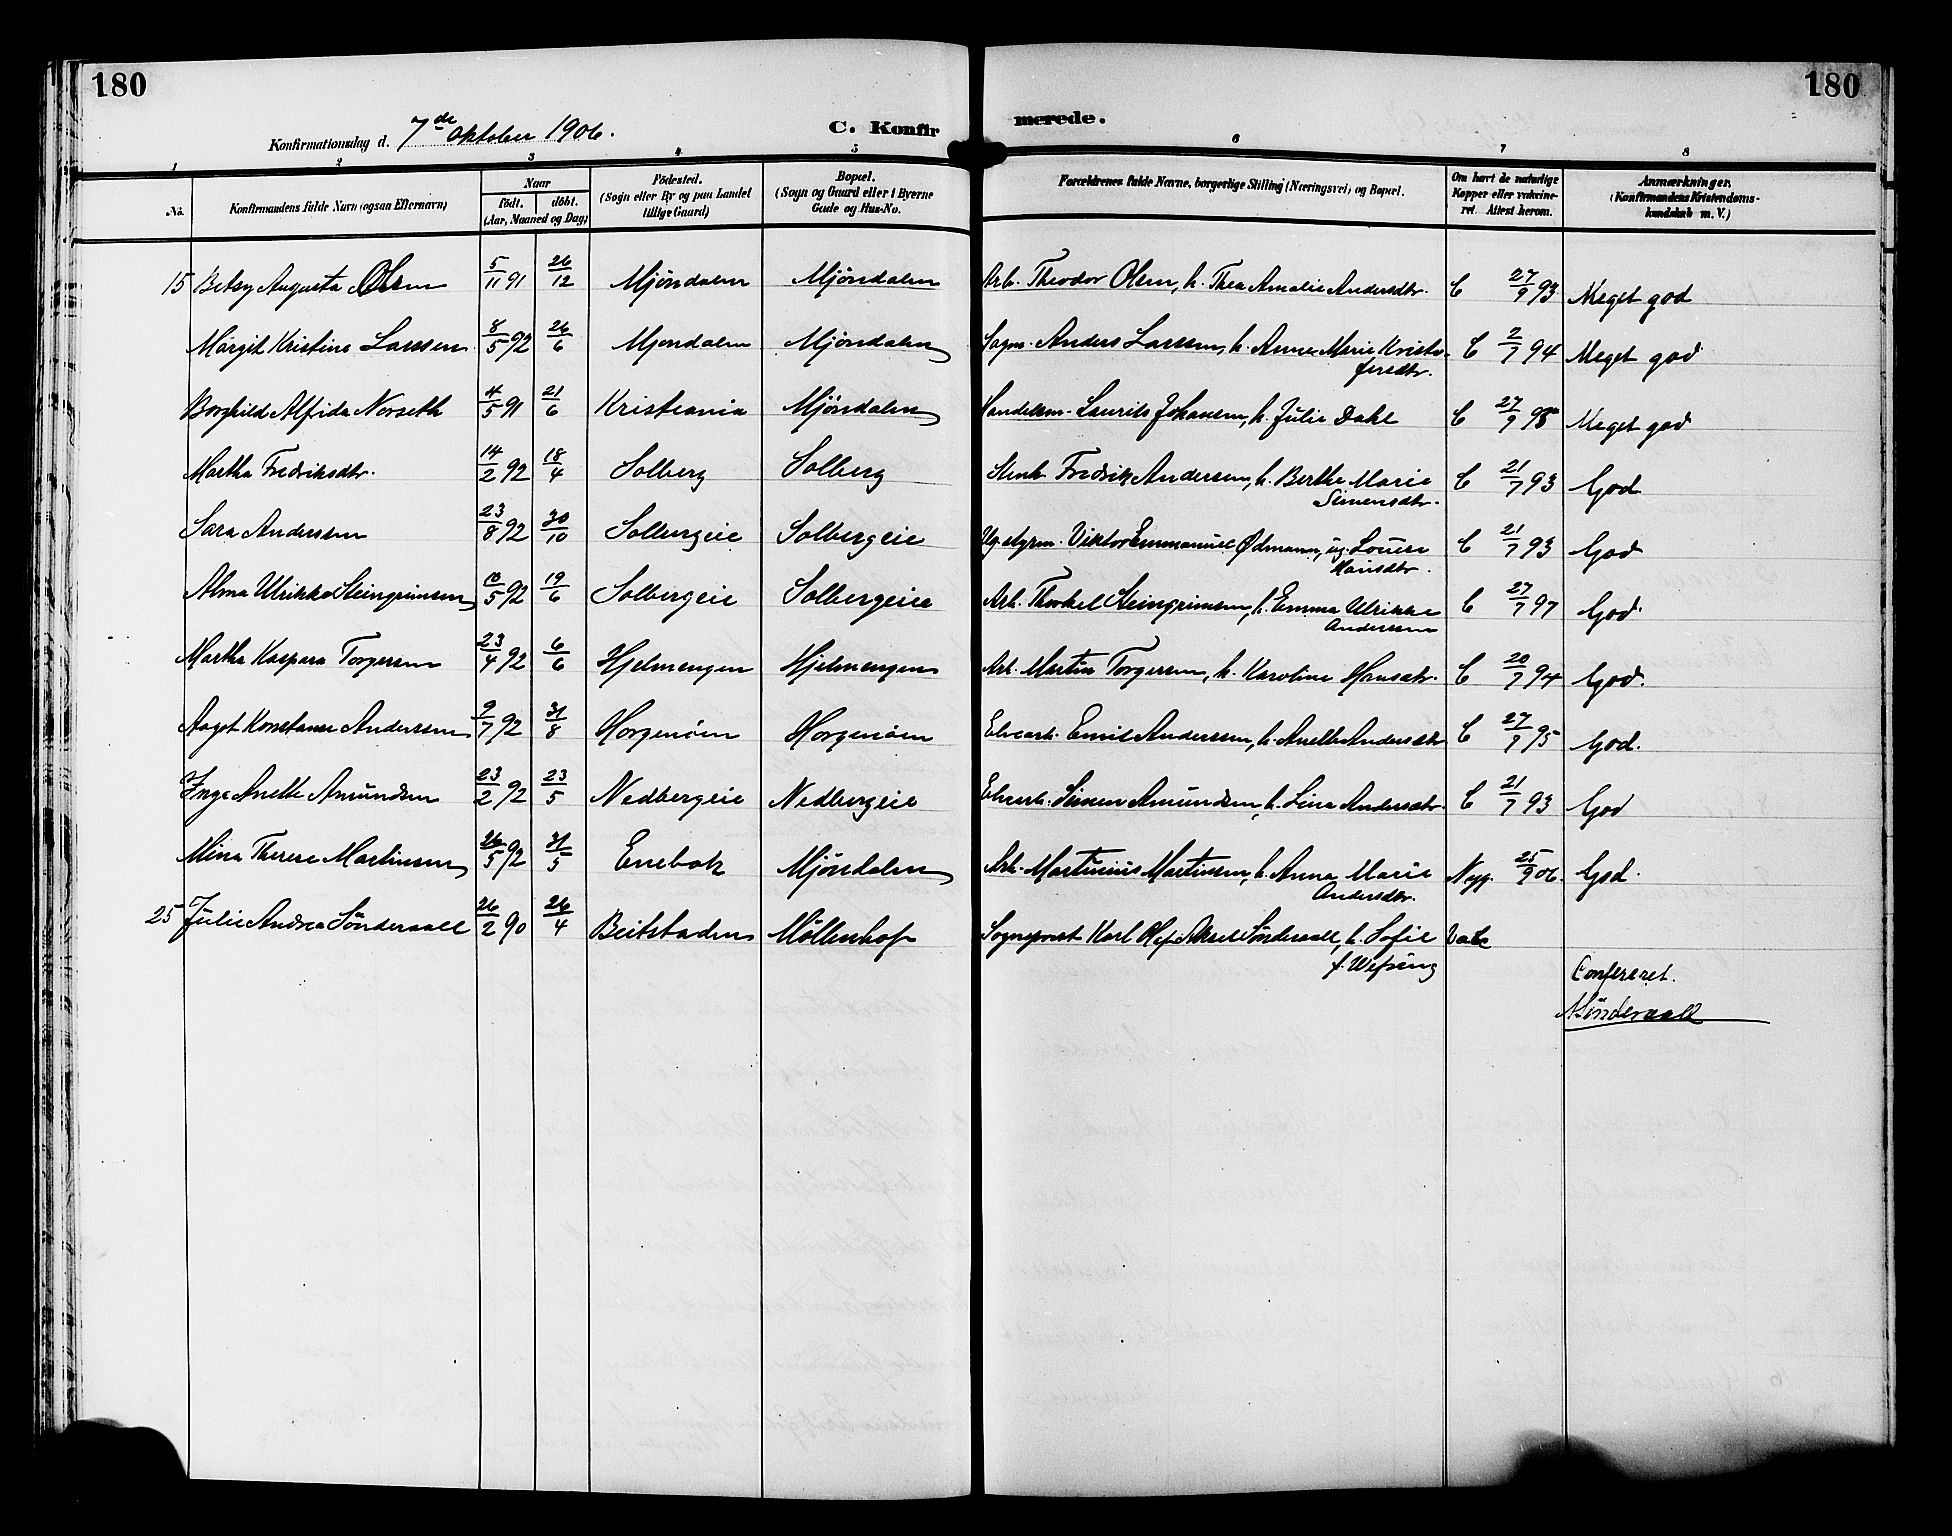 180
180
Konfirmationsdag d. 7de oktober 1906.
C. Konfirmerede.
1 2 3 4 5 6 7 8
No.
Konfirmandens fulde Navn (ogsaa Efternavn)
Naar
født. døbt.
(Aar, Maaned og Dag)
Fødested.
(Sogn eller By og paa Landet
tillige Gaard)
Bopæl.
(Sogn og Gaard eller i Byerne
Gade og Hus-No.
Forældrenes fulde Navne, borgerlige Stilling (Næringsvei) og Bopæl.
Om havt de naturlige
Kopper eller vakcine-
ret. Attest herom.
Anmærkninger.
(Konfirmandens Kristendoms-
kundskab m. V.)
15 Betsy Augusta Olsen 5/11 91 26/12 Mjöndalen Mjöndalen Arb. Theodor Olsen, h. Thea Amalie Andersdtr. C 27/9 93 Meget god
Margit Kristine Larssen 8/5 92 26/6 Mjöndalen Mjöndalen Anders Larssen, h. Anne Marie Kristo- C 2/7 94 Meget god
fersdtr.
Borghild Alfida Norseth 4/5 91 21/6 Kristiania Mjöndalen Handelsm. Laurits Johansen, h. Julie Dahl C 27/9 98 Meget god
Martha Fredriksdtr. 14/2 92 18/4 Solberg Solberg Stenh. Fredrik Andersen, h. Berthe Marie C 21/7 93 God
Simensdtr.
Sara Andersen 23/8 92 30/10 Solbergeie Solbergeie Viktor Emmanuel Ødmann, ug. Louise C 21/7 93 God
Hansdtr.
Alma Ulrikke Steingrimsen 10/5 92 19/6 Solbergeie Solbergeie Arb. Thorkel Steingrimsen, h. Emma Ulrikke C 27/7 97 God
Andersen
Martha Kaspara Torgersen 23/4 92 6/6 Hjelmengen Hjelmengen Arb. Martin Torgersen, h. Karoline Hansdtr. C 20/7 94 God.
Aagot Konstanse Andersen 9/7 92 31/8 Horgenöien Horgenöien Elvearb. Emil Andersen, h. Anette Andersdtr C 27/7 95 God.
Inga Anette Amundsen 23/2 92 23/5 Nedbergeie Nedbergeie Elvearb. Simen Amundsen, h. Lina Andersdtr. C 21/7 93 God
Mina Therese Martinsen 26/5 92 31/5 Enebak Mjöndalen Arb. Martinius Martinsen, h. Anna Marie Nyg. 25/9 06. God.
Andersdtr.
25 Julie Andrea Sönderaall 26/2 90 26/4 Beitstaden Möllenhof Sogneprest Karl Aksel Sönderaall, h. Sofie
f. Wefring
Confereret.
ASönderaall